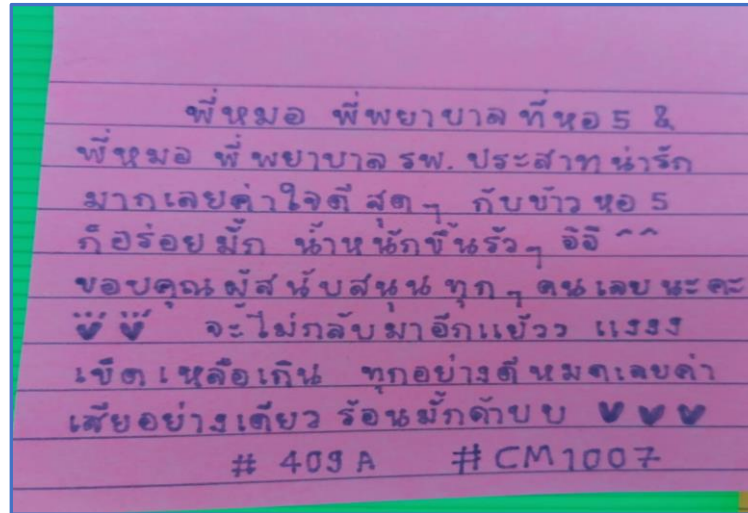 พี่หมอ พี่พยาบาล ที่หอ 5 &
พี่หมอ พี่พยาบาล รพ. ประสาท น่ารัก
มากเลยค่าใจดี สุดๆ กับข้าว หอ 5
ก็อร่อยมั๊ก น้ำหนักขึ้นรัวๆ อิอิ ^^
ขอบคุณผู้สนับสนุน ทุกๆ คนเลยนะคะ
จะไม่กลับมาอีกแย้วว แงงง
เข็ดเหลือเกิน ทุกอย่างดีหมดเลยค่า
เสียอย่างเดียว ร้อนมั๊กค้าบบ ♥ ♥ ♥
# 409 A #CM1007